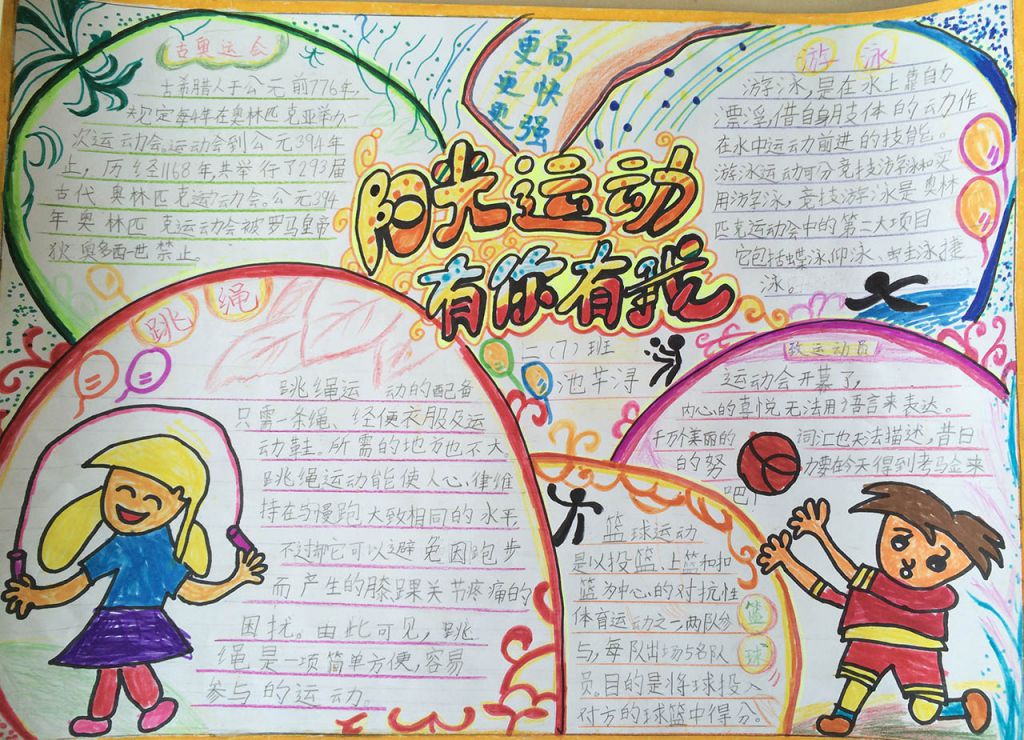 古奥运会
古希腊人于公元前776年,
规定每4年在奥林匹克亚举办一
次运动会。运动会到公元394年
止,历经1168年,共举行了293届
古代奥林匹克运动会。公元394
年奥林匹克运动会被罗马皇帝
狄奥多西一世禁止。
更高
更快
更强
阳光运动
有你有我
二(7)班
池芊浔
游泳
游泳,是在水上靠自力
漂浮,借自身肢体的动力作
在水中运动前进的技能。
游泳运动可分竞技游泳和实
用游泳,竞技游泳是奥林
匹克运动会中的第二大项目
它包括蝶泳、仰泳、蛙泳、捷
泳。
跳绳
跳绳运动的配备
只需一条绳、轻便衣服及运
动鞋。所需的地方也不大。
跳绳运动能使人心律维
持在与慢跑大致相同的水平,
不过却它可以避免因跑步
而产生的膝踝关节疼痛的
困扰。由此可见,跳
绳是一项简单方便,容易
参与的运动。
致运动员
运动会开幕了,
内心的喜悦无法用语言来表达。
千万个美丽的词汇也无法描述,昔日
的努力要在今天得到
吧!
篮球运动
是以投篮、上篮和扣
篮为中心的对抗性
体育运动之一两队参
与,每队出场5名队
员。目的是将球投入
对方的球篮中得分。
篮球